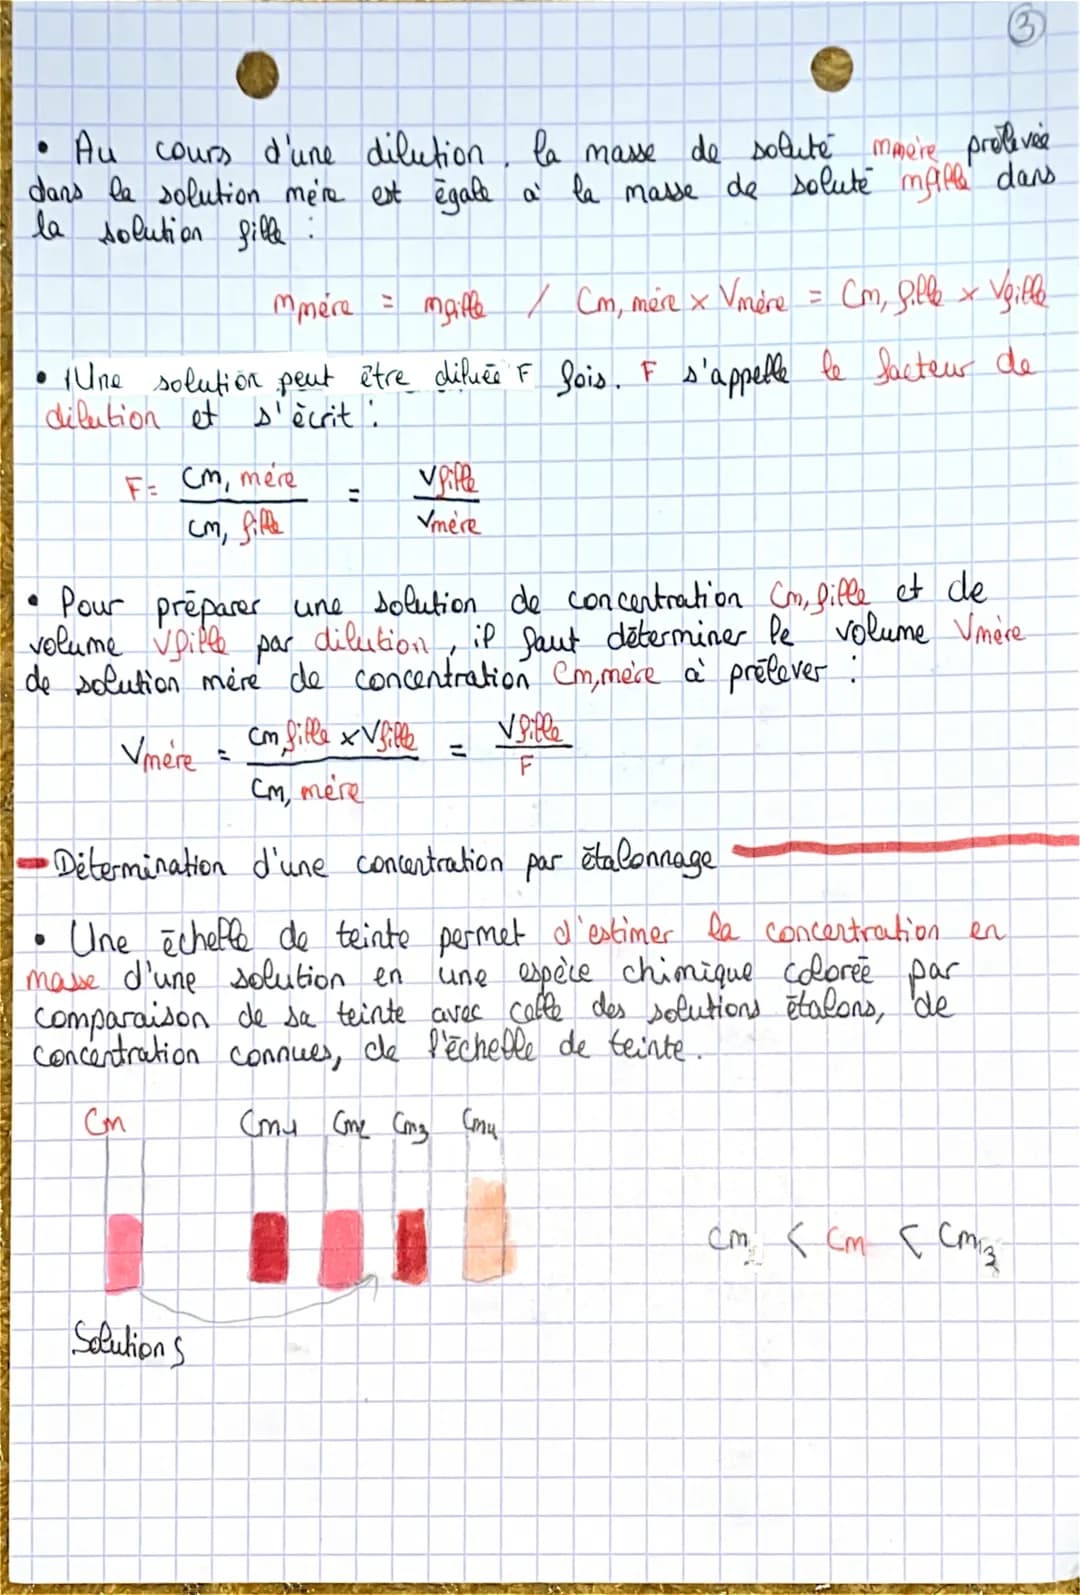 3
• Au cours d'une dilution, la masse de soluté mmère prélevée
dans la solution mère est égale à la masse de soluté mfille dans
la solution fille :
mmère = mfille / Cm, mère x Vmère = Cm, fille x Vfille
• Une solution peut être diluée F fois. F s'appelle le facteur de
dilution et s'écrit :
F= Cm, mère / Cm, fille = Vfille / Vmère
• Pour préparer une solution de concentration Cm, fille et de
volume Vfille par dilution, il faut déterminer le volume Vmère
de solution mère de concentration Cm, mère à prélever :
Vmère = Cm, fille x Vfille / Cm, mère = Vfille / F
- Détermination d'une concentration par étalonnage
• Une échelle de teinte permet d'estimer la concentration en
masse d'une solution en une espèce chimique colorée par
comparaison de sa teinte avec celle des solutions étalons, de
concentration connues, de l'échelle de teinte.
Cm Cm1 Cm2 Cm3 Cm4
Cm2 < Cm < Cm3
Solution S